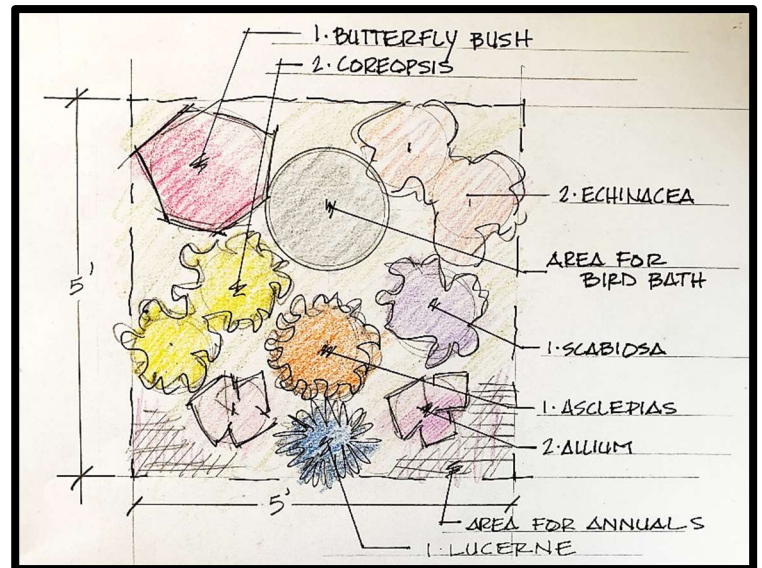 1. BUTTERFLY BUSH
2. COREOPSIS
2. ECHINACEA
AREA FOR
BIRD BATH
5'
1. SCABIOSA
1. ASCLEPIAS
2. ALLIUM
5'
AREA FOR ANNUALS
1. LUCERNE